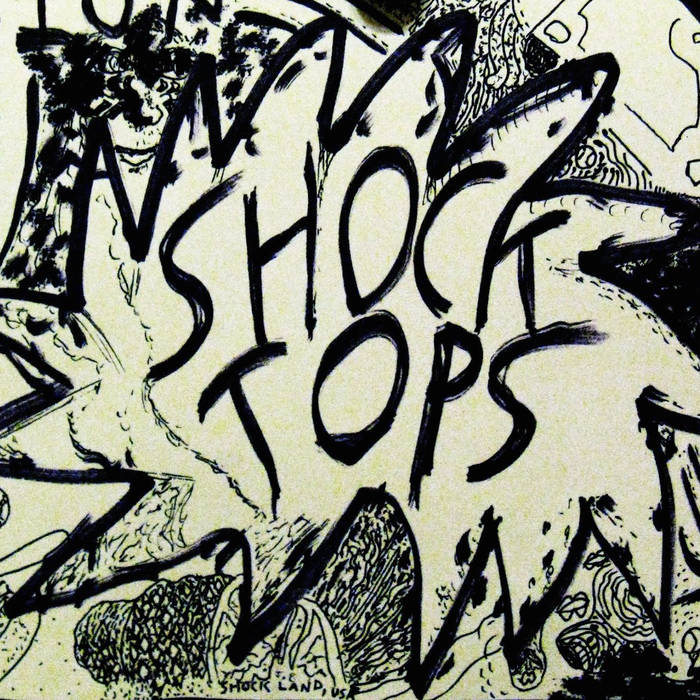 SHOCK
TOPS
SHOCK LAND, USA